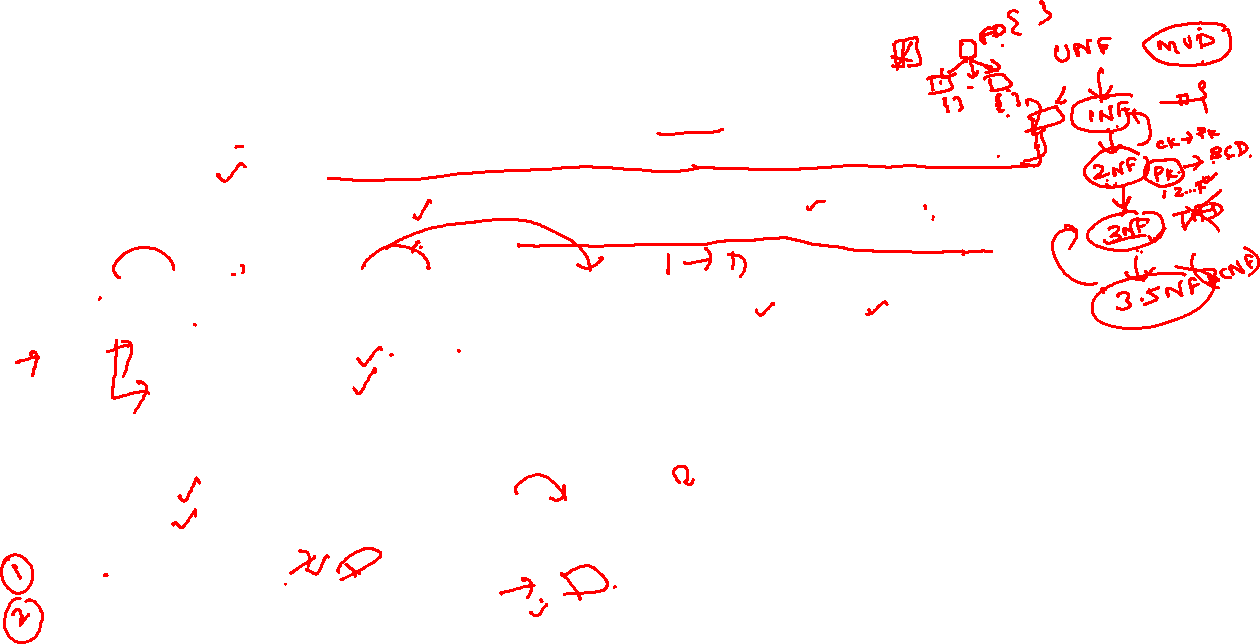 FD { }
UNF
MVD
{ }
{ }
1NF
CK → PK
2NF
PK → BCD
1 2...
3NF
1 → n
3.5NF
BCNF)
1
2